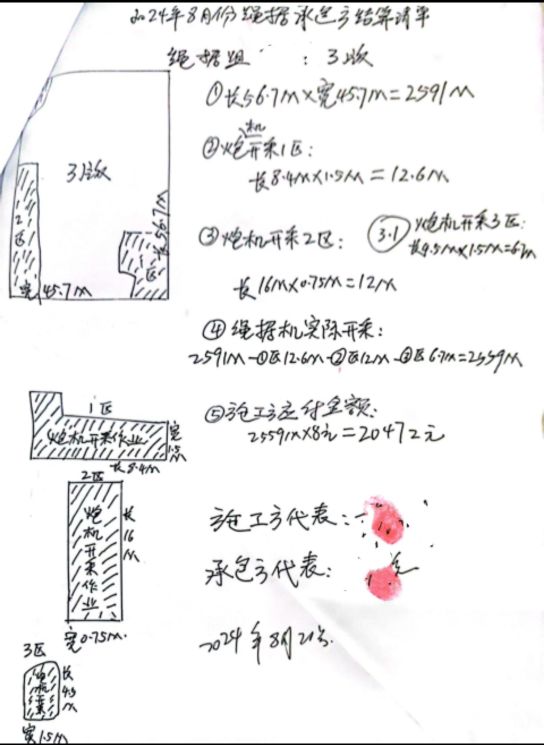 2024年8月份绳据承包方结算清单
绳据组 : 3版
①长56.7M×宽45.7M=2591M
②炮机开采1区:
长8.4M×1.5M=12.6M
③炮机开采2区:
长16M×0.75M=12M
3.1 炮机开采3区:
长4.5M×1.5M=6.7M
④绳据机实际开采:
2591M-①区12.6M-②区12M-③区6.7M=2559M
⑤施工方应付金额:
2559M×8元=20472元
施工方代表:
承包方代表:
2024年8月21号.
3版
12区
长56.7M
宽45.7M
区
1区
炮机开采作业
宽1.5M
长8.4M
2区
炮机开采作业
长16M
宽0.75M.
3区
炮机开采
长4.5M
宽1.5M